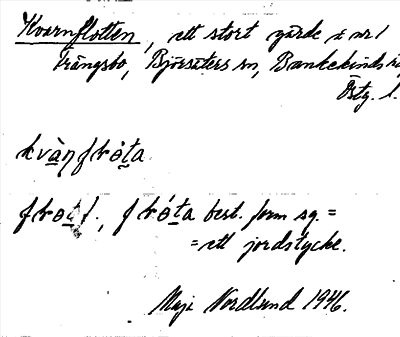 Kvarnflotten, ett stort gärde i nr 1
Krångsbo, Björsäters sn, Bankekinds
Östg. l.
kvàn̥frɵ́ta
f., frɵ́ta best. form sg. =
= ett jordstycke.
Maji Nordlund 1946.